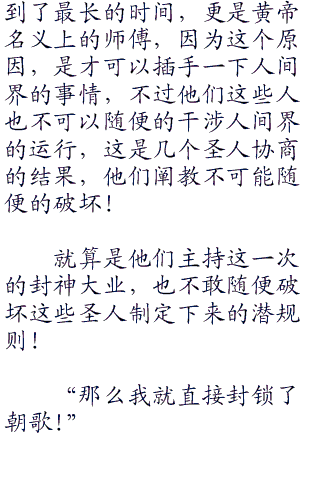 到了最长的时间，更是黄帝
名义上的师傅，因为这个原
因，是才可以插手一下人间
界的事情，不过他们这些人
也不可以随便的干涉人间界
的运行，这是几个圣人协商
的结果，他们阐教不可能随
便的破坏！
就算是他们主持这一次
的封神大业，也不敢随便破
坏这些圣人制定下来的潜规
则！
“那么我就直接封锁了
朝歌！”